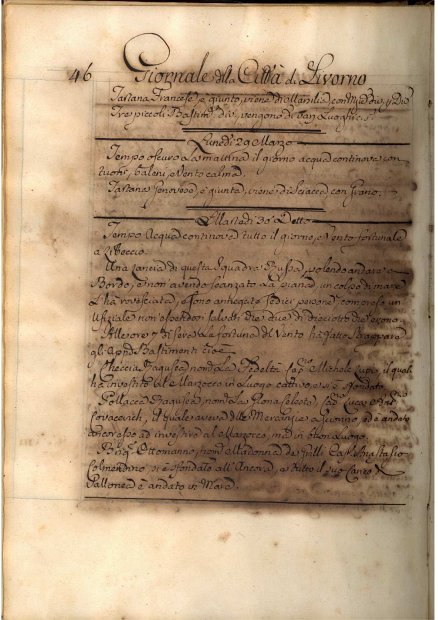 46 Giornale della Città di Livorno
Tartana Francese è giunta, viene di Marsilia con
Tre piccoli Bastim.ti
Lunedì 29 Marzo
Tempo oscuro la mattina il giorno acqua continova con
tuoni, baleni, e Vento calma.
Tartana Genovese, è giunta, viene di Sciacca con Grano.
Martedì 30 Detto
Tempo Acqua continova tutto il giorno, e Vento fortunale
a Libeccio.
Una Lancia di questa Squadra Russa, volendo andare a
Bordo, e non avendo scanzato la un colpo di mare
l'ha rovesciata, e sono annegate sedici persone compreso un
Ufiziale non essendosi salvati che due di diciotto che erono.
Alle ore di sera la fortuna di Vento ha fatto
gli Bastimenti cioè
Checcia Ragusea nom.ta La Fedeltà Cap. Michele il quale
ha investito al Marzocco in Luogo cattivo, e si è sfondato
Pollacca Ragusea nom.ta la Cap. Luca
il quale aveva delle Mercanzie a Livorno, ed è andato
ancor esso ad investire al Marzocco, ma in buon Luogo.
Ottomanno, nom. Madonna Cap. Anastasio
si è sfondato all'Ancora, e tutto il suo Carico di
Vallonea è andato in Mare.